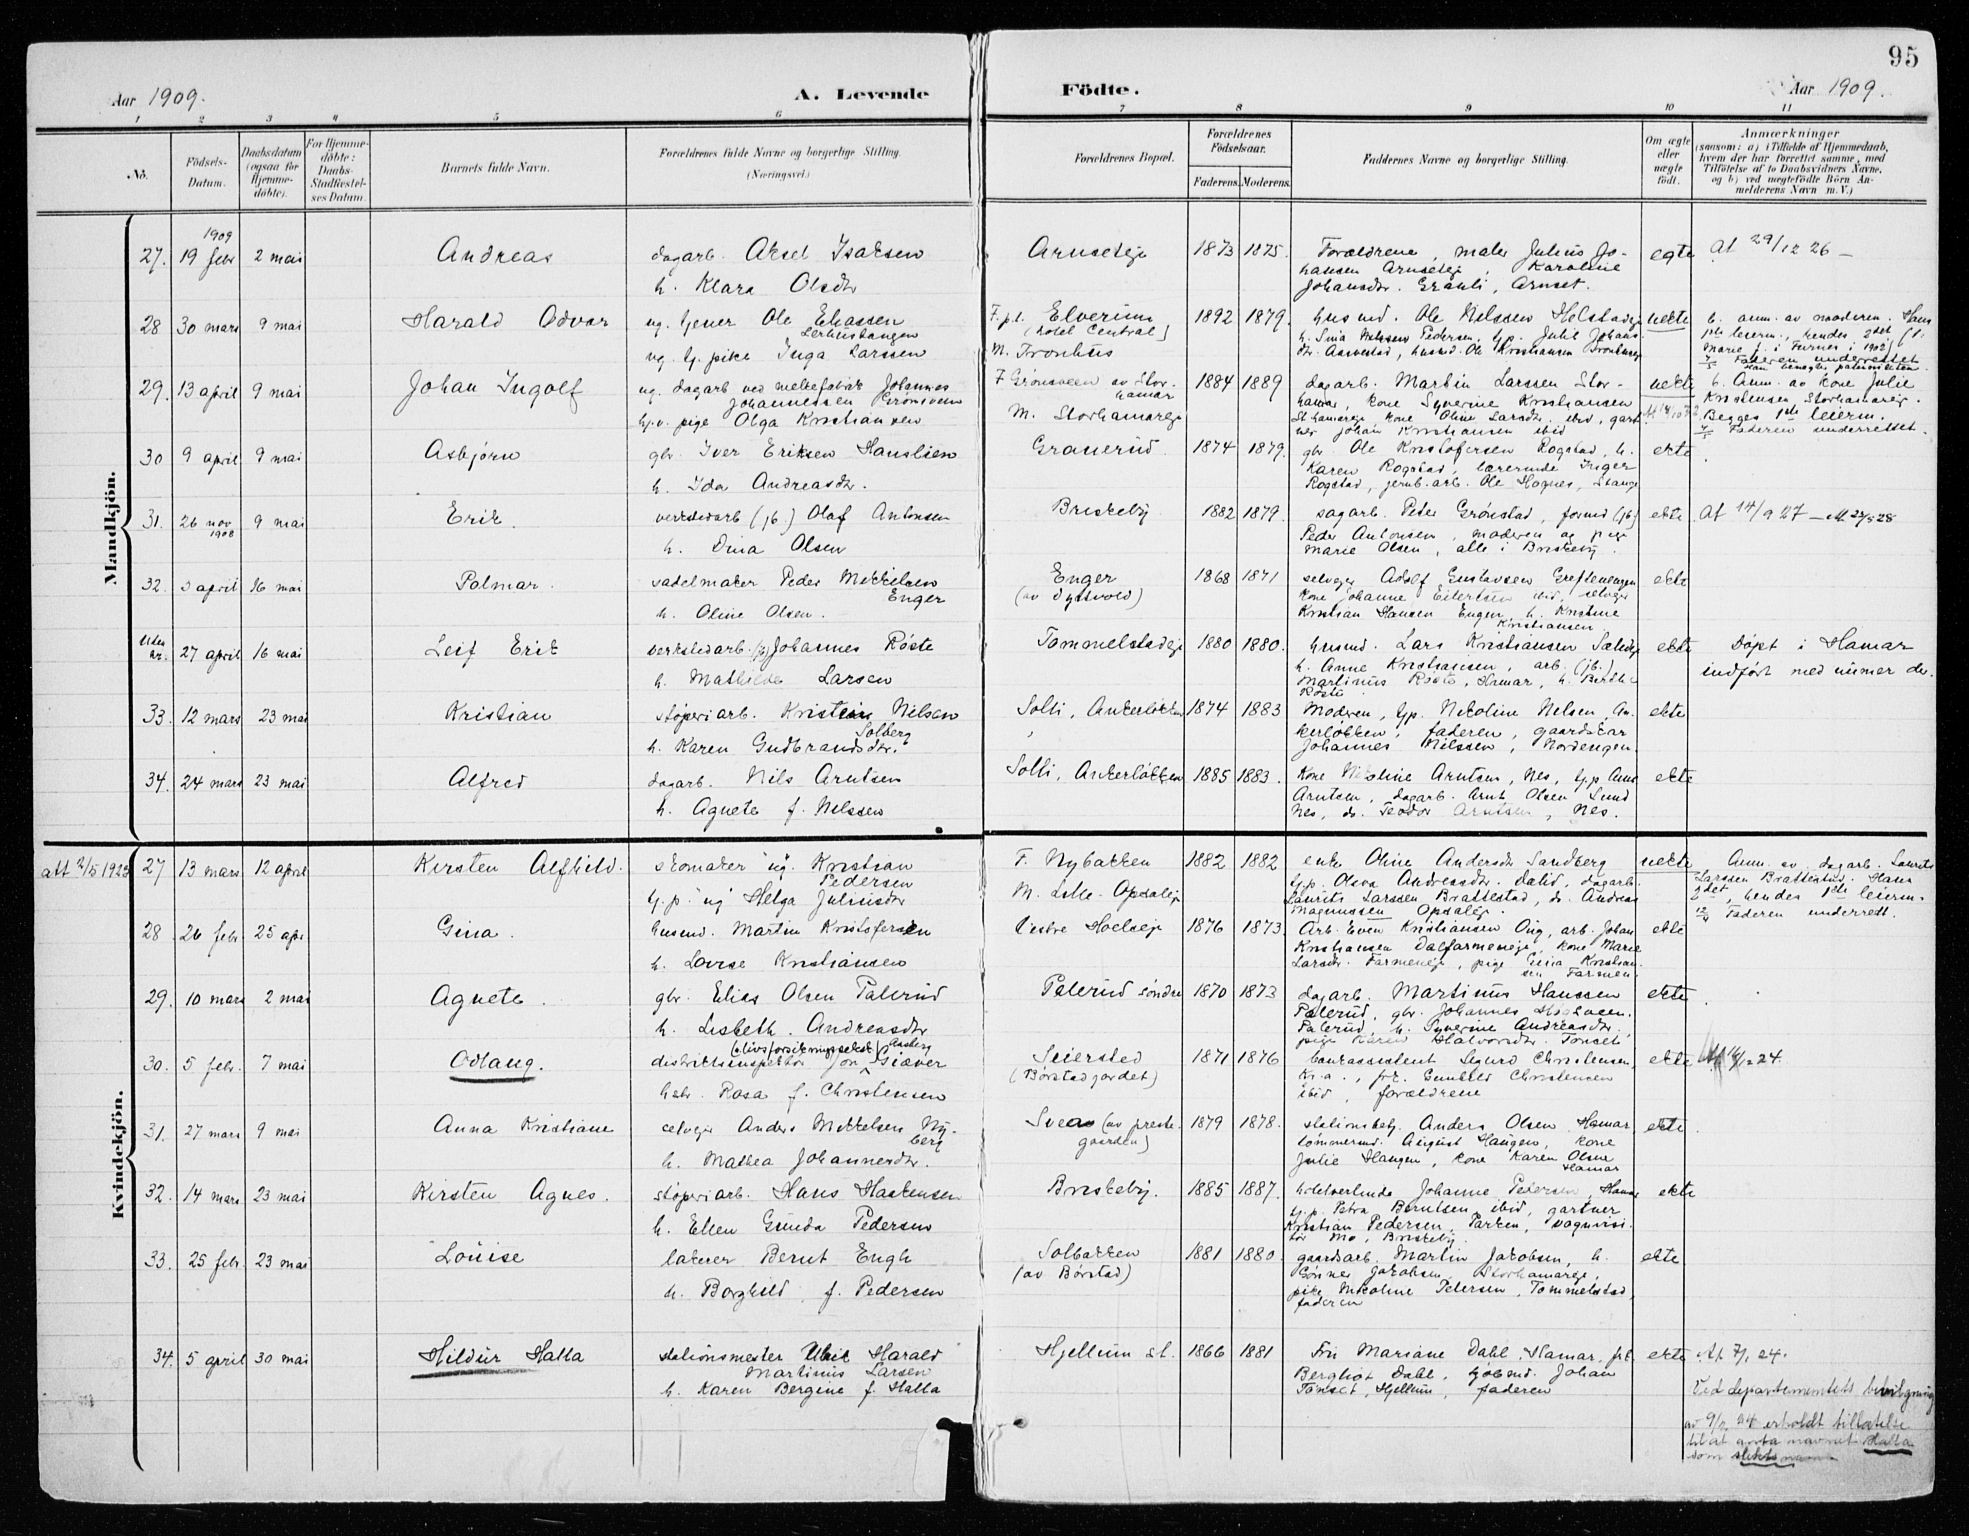 95
Aar 1909.
A. Levende
Födte.
Aar 1909.
1 2 3 4 5 6 7 8 9 10 11
No.
Födsels-Datum.
Daabsdatum (ogsaa for Hjemmedöbte).
For Hjemmedöbte: Daabs-Stadfæstelses Datum
Barnets fulde Navn.
Forældrenes fulde Navne og borgerlige Stilling. (Næringsvei.)
Forældrenes Bopæl.
Forældrenes Födselsaar.
Faderens. Moderens.
Faddernes Navne og borgerlige Stilling.
Om ægte eller uægte födt.
Anmærkninger
(saasom: a) i Tilfælde af Hjemmedaab, hvem der har forrettet samme, med Tilföielse af to Daabsvidners Navne, og b) ved uægtefödte Börn Anmelderens Navn m. V.)
Mandkjön.
27. 1909 19 febr 2 mai Andreas dagarb. Aksel Isaksen
h. Klara Olsdtr
Arnseteje 1873 1875. Forældrene, maler Julius Johansen Arnseteje, Karoline
Johansdtr. Granli, Arnset.
egte At 29/12 26 –
28 30 mars 9 mai Harald Odvar ug. tjener Ole Eliassen
ug. tj. pike Inga Larssen
F. p.t. Elverum (hotel Central)
M. Tronhus
1892 1879. husmd. Ole Nilssen Helstadeje
uekte
Faderen underrettet
29. 13 april 9 mai Johan Ingolf ug. dagarb ved melkefabrik Johannes
Johannessen Grönsveen
pige Olga Kristiansen
F Grönsveen av Storhamar
M. Storhamareje
1884 1889 dagarb. Martin Larssen Storhamar, kone Syverine Kristiansen
Johan Kristiansen ibid
uekte b. Anm. av kone Julie
Kristensen Storhamareje.
Begges 1ste leierm.
Faderen underrettet.
30 9 april 9 mai Asbjørn gbr. Iver Eriksen Hanslien
h. Ida Andreasdtr.
Granerud 1874 1879. gbr. Ole Kristofersen Rogstad, h.
Karen Rogstad, lærerinde Inger
Rogstad, jernb.arb. Ole Hognes, Stange
ekte
31. 26 nov 1908 9 mai Erik. verkstedarb (jb.) Olaf Antonsen
h. Dina Olsen
Briskeby 1882 1879. sagarb. Peter Grønstad, formd (jb)
Peder Antonsen, moderen og pige
Marie Olsen, alle i Briskeby.
ekte At 14/9 27
32. april 16 mai Palmar. sadelmaker Peder Mikkelsen
Enger
h. Oline Olsen.
Enger
(av Dystvold)
1868 1871 selvejer Adolf Gustavsen
kone Johanne Eilertsen ibid, selvejer
Kristian Hansen Enger, h. Kristine
Kristiansen
ekte
Uten nr. 27 april 16 mai Leif Erik verkstedarb. (jb) Johannes Røste
h. Mathilde Larsen
Tommelstadeje 1880 1880. husmd. Lars Kristiansen
h. Anne Kristiansen, arb. (jb.)
Martinus Røste, Hamar, h. Berthe
Røste
ekte Døpt i Hamar
indført med numer der.
33. 12 mars 23 mai Kristian støperiarb. Kristian Nilsen
Solberg
h. Karen Gudbrandsdtr.
Solli, Ankerløkken 1874 1883 Moderen, tjp. Nikoline Nelsen, Ankerløkken, faderen, gaardskar
Johannes Nilssen, Nordengen.
ekte
34. 24 mars 23 mai Alfred dagarb. Nils Arntsen
h. Agnete f. Nilssen
Solli, Ankerløkken 1885 1883. Kone Nikoline Arntsen, Nes, tjp
Arntsen, dagarb. Arnt Olsen Sund
Nes, do. Teodor Arntsen, Nes.
ekte
Kvindekjön.
att 2/5 1923 27 13 mars 12 april Kirsten Alfhild. skomaker ug. Kristian
Pedersen
tj.p. ug Helga Juliusdtr
F. Nybakken
M. Lille Opsaleje
1882 1882 enke Oline Andersdtr Sandberg
tj.p. Olga Andreasdtr. Dalid, dagarb.
Laurits Larssen Brattestad, do. Andreas
Magnussen Opsaleje.
uekte Anm. av dagarb. Laurits
Larssen Brattestad. Hans
2det, hendes 1ste leierm.
Faderen underrett.
28 26 febr. 25 apr Gina. husmd. Martin Kristofersen
h. Lovise Kristiansen
Vestre Hoelseje 1876 1873 Arb. Even Kristiansen, arb. Johan
Kristiansen Dalfarmeneje, kone Marie
Larsdtr. Farmeneje, pige Gina Kristiansen Farmen.
ekte
29. 10 mars 2 mai Agnete. gbr. Elias Olsen Palerud
h. Lisbeth. Andreasdtr
Palerud søndre 1870 1873 dagarb. Martinus Hanssen
Palerud, gbr. Johannes
Palerud, h. Syverine Andreasdtr.
pige Karen Halvorsdtr. Tønset.
ekte
30. 5 febr. 7 mai Odlaug. (livsforsikringsselsk)
distriktsinspektør Jon Giæver
hstr. Rosa f. Christensen
Seiersted
(Børstadjordet)
1871 1876 bankassistent Sigurd Christensen,
Kr.a., frk. Gunhild Christensen
ibid, forældrene
ekte
31. 27 mars 9 mai Anna Kristiane selvejer Anders Mikkelsen Nyberg
h. Mathea Johannesdtr.
Svea (av prestegaarden) 1879 1878. stationsbetj. Anders Olsen Hamar,
tømmermd. August Haugen, kone
Julie Haugen, kone Karen Olsen
Hamar
ekte
32. 14 mars 23 mai Kirsten Agnes. støperiarb. Hans Haakensen
h. Ellen Gunda Pedersen
Briskeby. 1885 1887. hotelvertinde Johanne Petersen, Hamar
tj.p. Petra Berntsen ibid, gartner
Kristian Pedersen, Parken, vognvisitør Mo, Briskeby.
ekte
33. 25 febr. 23 mai Louise lakerer Bernt Engh
h. Borghild f. Pedersen
Solbakken
(av Børstad)
1881 1880. gaardsarb. Martin Jakobsen, h.
Jakobsen Storhamareje,
pike Nicoline Petersen, Tommelstad,
faderen
ekte
34. 5 april 30 mai Hildur Halla stationsmester Harald
Martinius Larsen
h. Karen Bergine f. Halla
Hjellum st. 1866 1881 Fru Mariane Dahl, Hamar, frk.
Bergliot Dahl, Johan
Tønset, Hjellum, faderen
ekte
Ved departementets bevilgning
av 9/2 24 erholdt tillatelse
til at anta navnet Halla
som slektsnavn